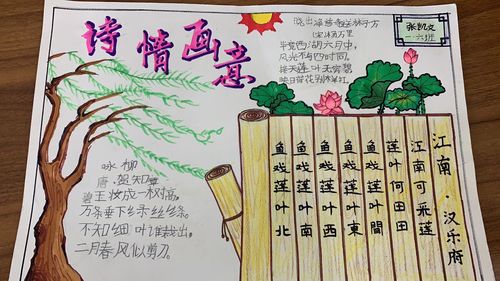 诗情画意
晓出净慈寺送林子方
宋 杨万里
毕竟西湖六月中，
风光不与四时同。
接天莲叶无穷碧
映日荷花别样红。
张凯文
一·六班
咏柳
唐·贺知章
碧玉妆成一树高，
万条垂下绿丝绦。
不知细叶谁裁出，
二月春风似剪刀。
江南·汉乐府
江南可采莲
莲叶何田田
鱼戏莲叶間
鱼戏莲叶東
鱼戏莲叶西
鱼戏莲叶南
鱼戏莲叶北